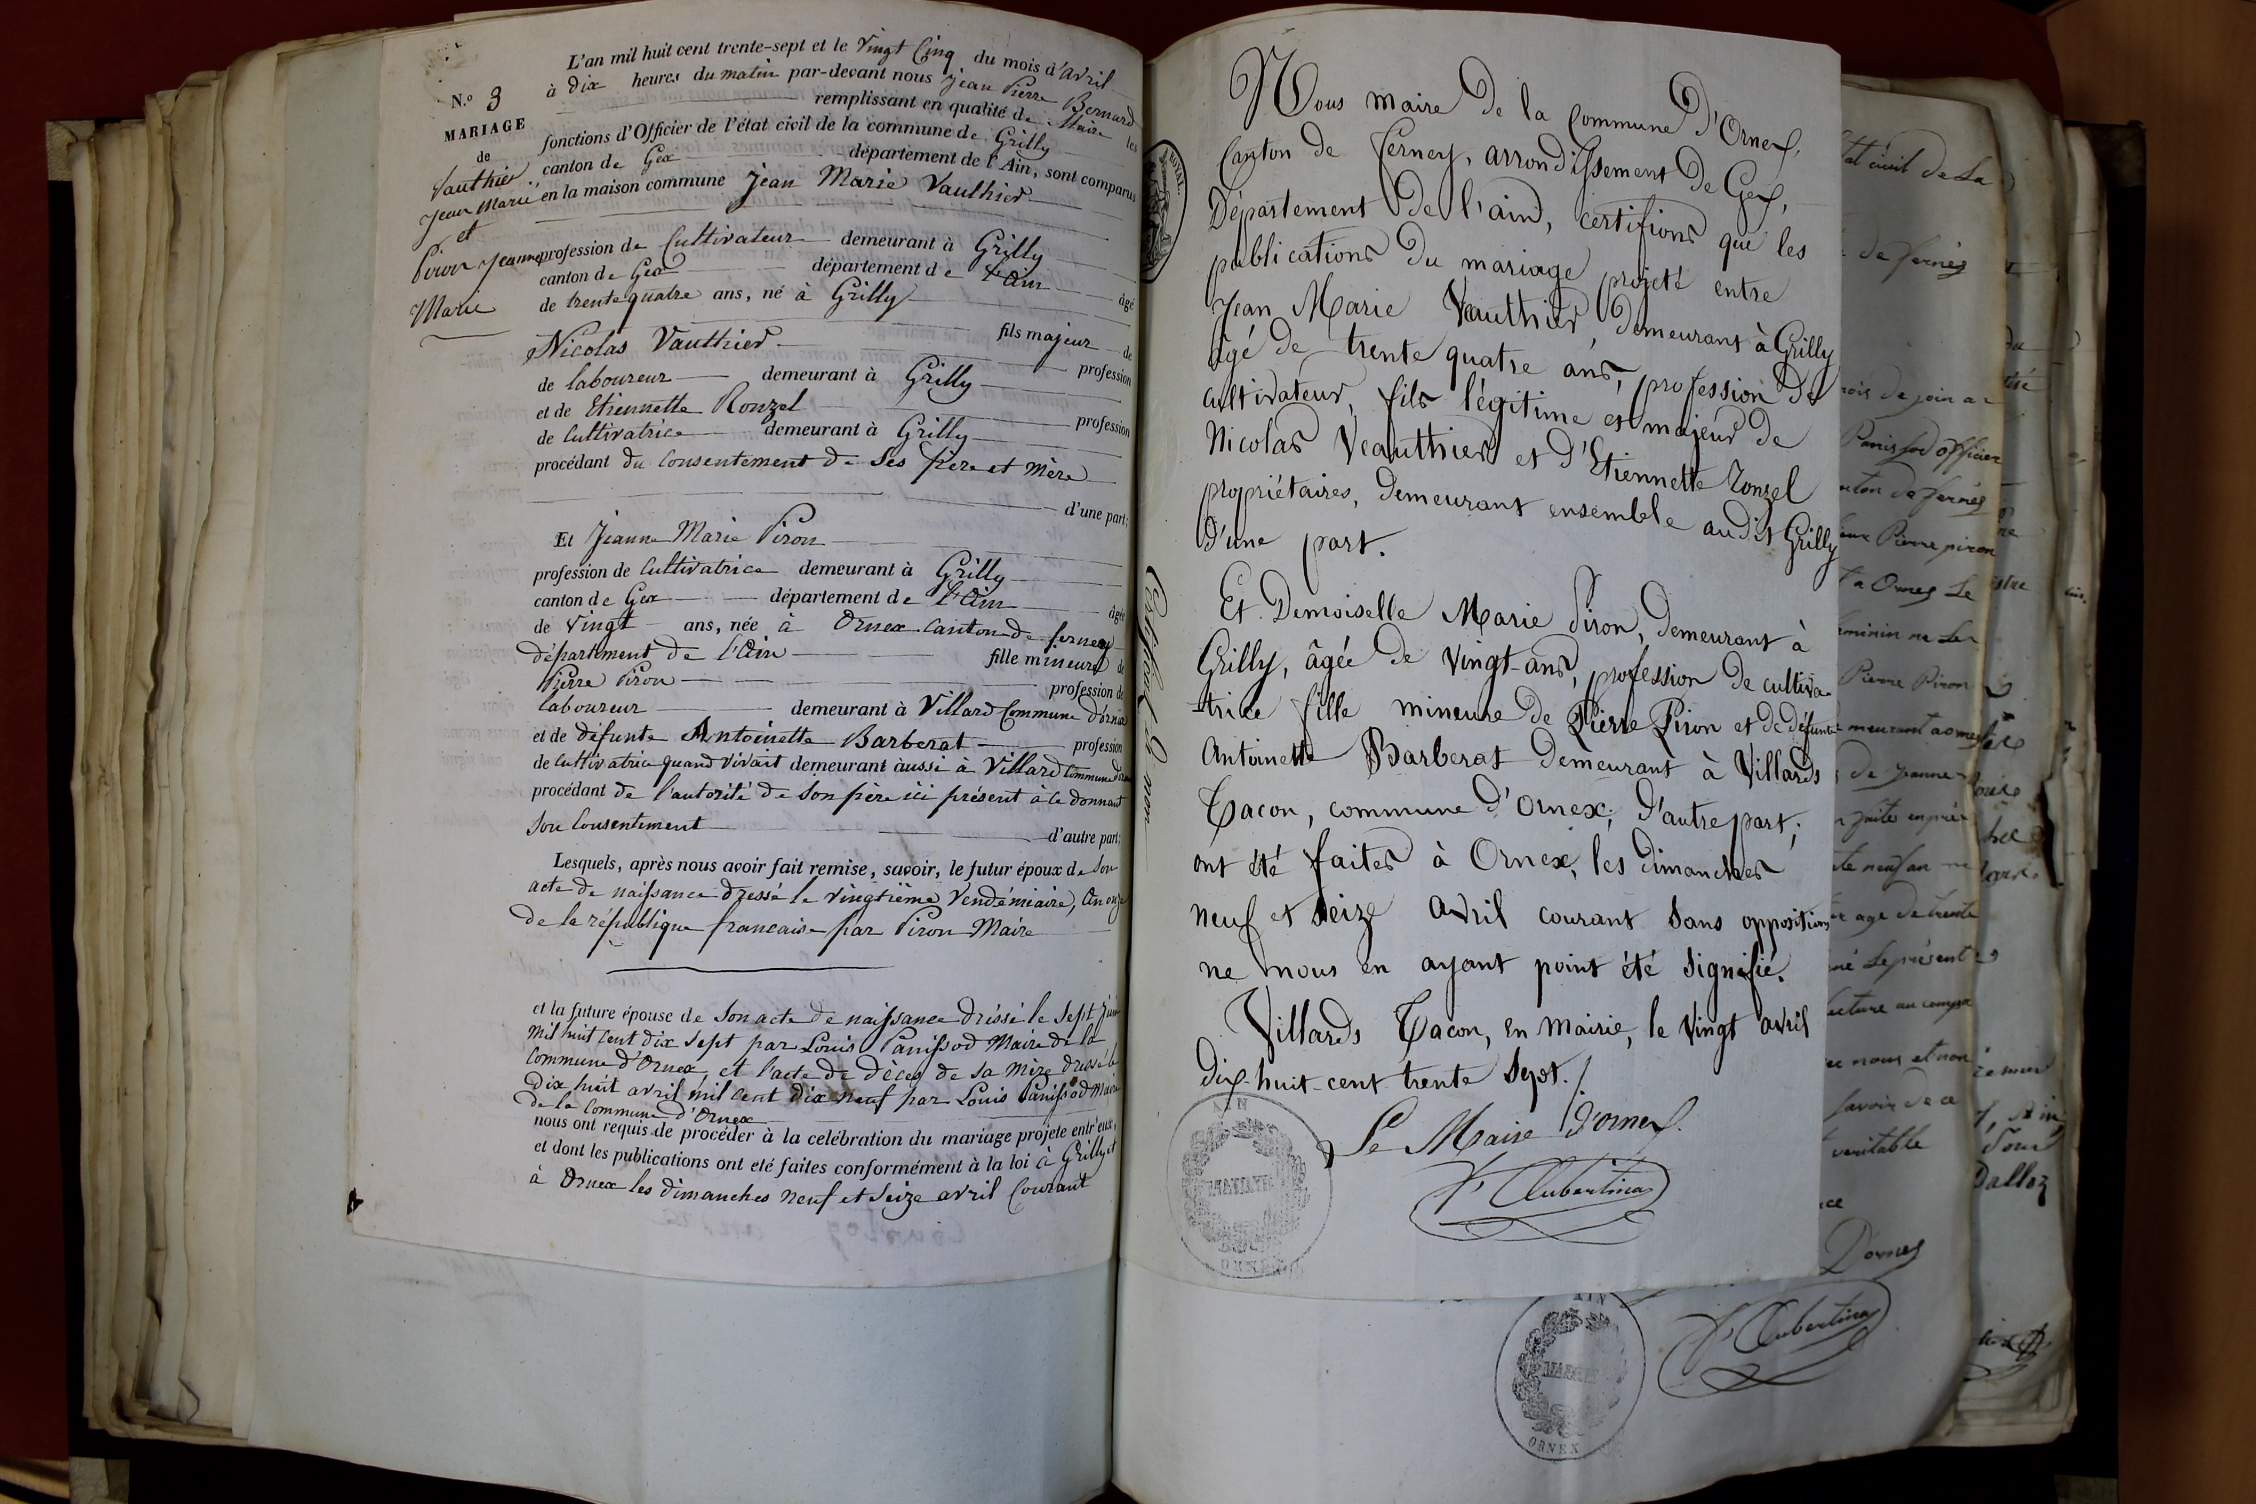 L'an mil huit cent trente-sept et le vingt Cinq du mois d'avril
à dix heures du matin par-devant nous Jean Pierre Bernard
remplissant en qualité de Maire les
fonctions d'Officier de l'état civil de la commune de Grilly
canton de Gex département de l'Ain, sont comparus
en la maison commune Jean Marie Vauthier
N.o 3
MARIAGE
de
Vauthier
Jean Marie
et
Piron Jeanne
Marie
profession de Cultivateur demeurant à Grilly
canton de Gex département de l'Ain âgé
de trente quatre ans, né à Grilly
fils majeur de
Nicolas Vauthier profession
de laboureur demeurant à Grilly
et de Etiennette Ronzel profession
de Cultivatrice demeurant à Grilly
procédant du Consentement de Ses père et mère
d'une part;
Et Jeanne Marie Piron
profession de Cultivatrice demeurant à Grilly
canton de Gex département de l'Ain âgée
de vingt ans, née à Ornex canton de ferney
département de l'Ain fille mineure de
Pierre Piron profession de
laboureur demeurant à Villard Commune d'ornex
et de défunte Antoinette Barberat profession
de Cultivatrice quand vivait demeurant aussi à Villard Commune
procédant de l'autorité de Son père ici présent à ce donnant
Son Consentement d'autre part;
Lesquels, après nous avoir fait remise, savoir, le futur époux de Son
acte de naissance dressé le vingtième Vendémiaire, an onze
de la république francaise par Piron Maire
et la future épouse de Son acte de naissance dréssé le Sept Juin
mil huit Cent dix Sept par Louis Panissod Maire de la
Commune d'Ornex, et l'acte de décès de Sa mère dressé le
dix huit avril mil Cent dix neuf par Louis Panissod Maire
de la Commune d'Ornex
nous ont requis de procéder à la celébration du mariage projeté entr'eux,
et dont les publications ont eté faites conformément à la loi à Grilly et
à Ornex les dimanches neuf et Seize avril Courant
Nous maire De la Commune D'Ornex,
Canton de Ferney, arrondissement De Gex,
Département De l'ain, certifions que les
publications Du mariage projeté entre
Jean Marie Vauthier, Demeurant à Grilly
âgé De trente quatre ans, profession De
cultivateur, fils légitime et majeur de
Nicolas Veauthier et D'Etiennette Ronzel
propriétaires, Demeurant ensemble audit Grilly
D'une part.
Et Demoiselle Marie Piron, Demeurant à
Grilly, âgée De vingt ans, profession De cultiva-
trice fille mineure De Pierre Piron et de défunte
Antoinette Barberat Demeurant à Villards
Tacon, commune D'Ornex, D'autre part;
ont été faites à Ornex, les dimanches
neuf et Seize Avril courant Sans opposition
ne nous en ayant point été Signifié.
Villards Tacon, en Mairie, le vingt avril
Dix huit cent trente Sept.
Le Maire D'ornex.
Aubertin
AIN
ORNEX
état civil de La
de fernés
mois de join
Panissod officier
canton de fernés
Pierre piron
Pierre Piron
de Jeanne
age de trente
Le présent
nous et non
Savoir de ce
veritable
Dornex
Aubertin
AIN
MAIRIE
ORNEX
Dalloz